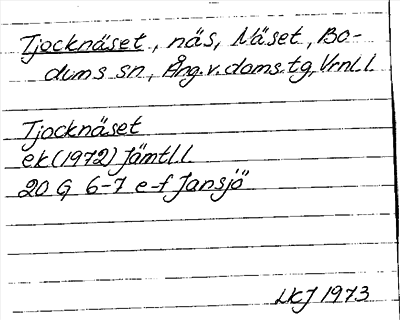 Tjocknäset, näs, Näset, Bo-
dums sn, Ång.v.doms.tg, Vrnl.l.
Tjocknäset
ek (1972) Jämtl.l
20 G 6-7 e-f Jansjö
LKJ 1973